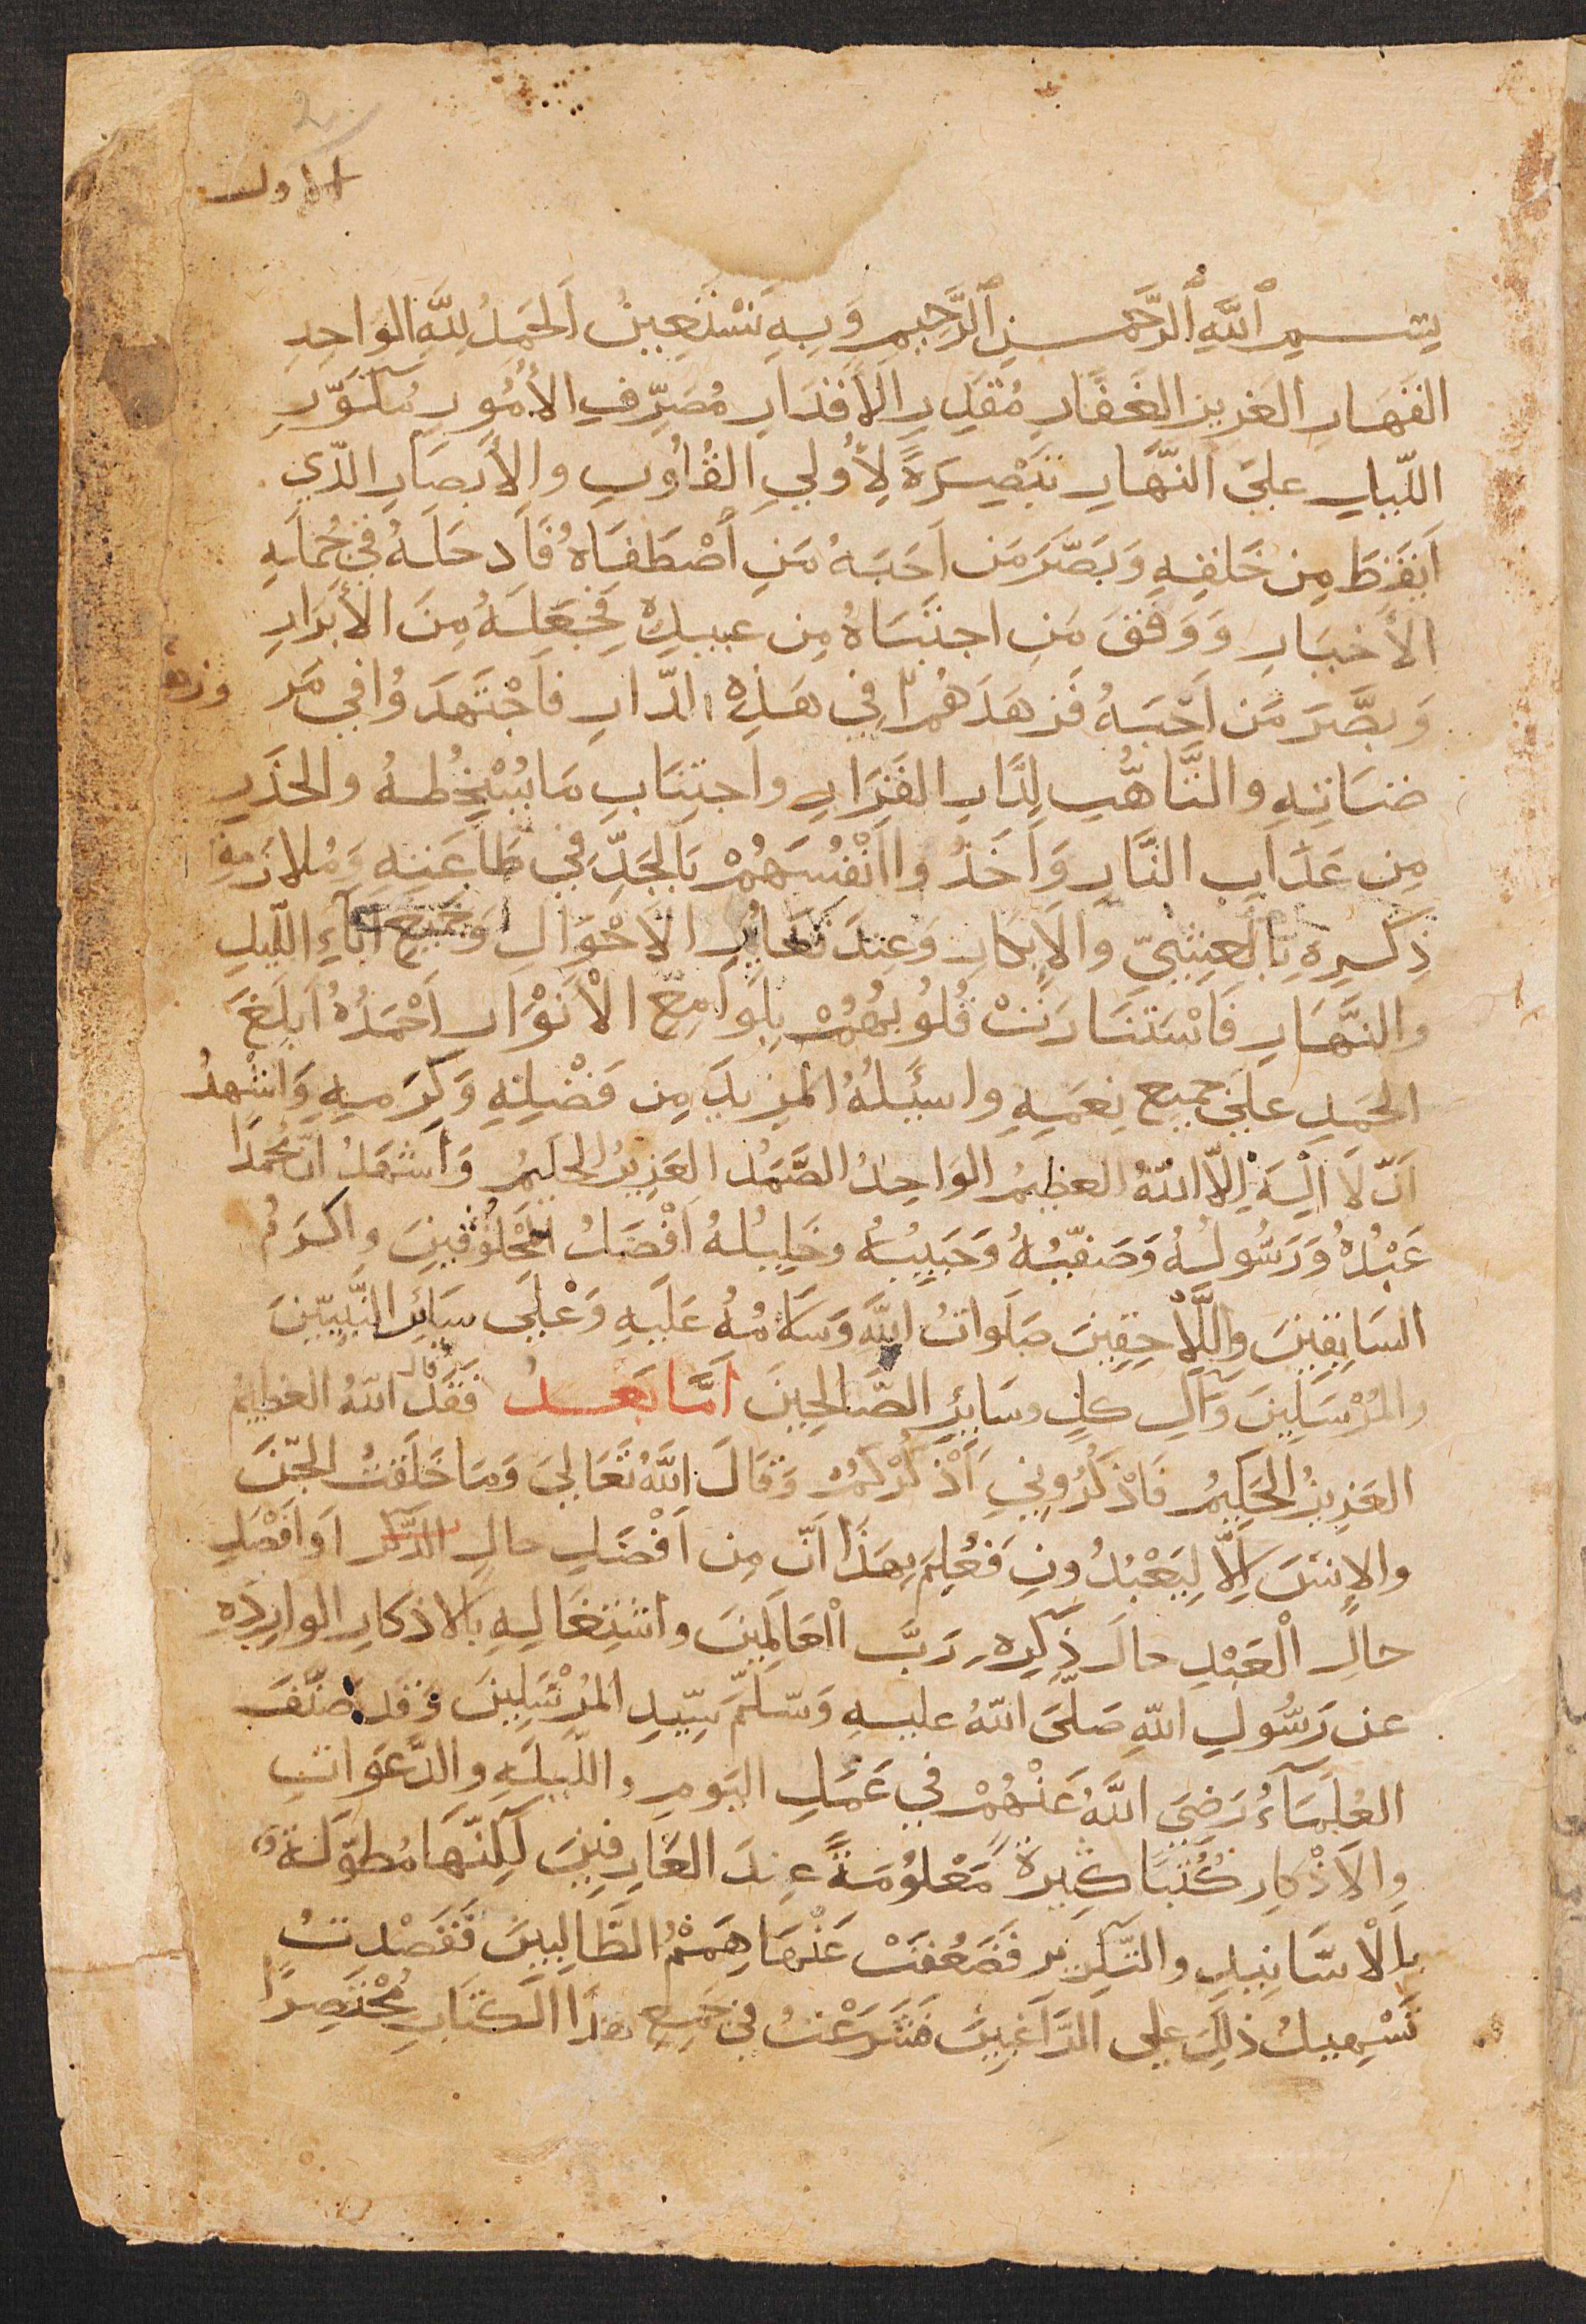 2
الاول
بِسْمِ ٱللَّهِ ٱلرَّحْمٰنِ ٱلرَّحِيمِ وَبِهِ نَسْتَعِينُ اَلحَمْدُ لِلَّهِ الوَاحِدِ
القَهَارِ العَزيزِ الغَفَّارِ مُقَدِّرِ الأَقْدَارِ مُصَرِّفِ الأُمُورِ مُكَوِّرِ
اللّيلِ عليَ النَّهَارِ تَبْصِرَةً لِأُولِي القُلُوبِ والأَبصَارِ الّذي
اَيقَظَ مِن خَلقِهِ وَبَصَّرَ مَن اَحَبَهُ مَنِ اَصْطَفَاهُ فَاَدخَلَهُ في جُملَةِ
الأَخيَارِ وَوَفَقَ مَنِ اجتَبَاهُ مِن عبيدِهِ فَجَعَلَهُ مِنَ الأَبرَارِ
وَبصَّرَ مَن اَحَبَهُ فَزهَدَهُم فِي هَذِهِ الدّارِ فَاجْتَهَدَوُا في مَر
ضَاتِهِ والتَّأَهُّبِ لِدَارِ القَرَارِ واجتِنَابِ مَا يُسْخِطُهُ والحَذَرِ
مِن عَذَابِ النَّارِ وَاَخَذُوا اَنْفُسَهُمْ بَالجَدِّ في طَاعَتِهِ وَمُلازَمَةِ
ذِكرِهِ بِالعِشيِّ والاِبكارِ وَعِندَ تَغَايُرِ الاَحْوَالِ وَجَميعِ آنَآءِ اللّيلِ
والنَّهَارِ فَاسْتَنَارَتْ قُلُوبُهُمْ بِلَوَامِعِ الْاَنْوَارِ اَحْمَدُهُ اَبلَغَ
الحَمدِ علىَ جَميع نِعَمِهِ واسئَلُهُ المَزيدَ مِن فَضْلِهِ وَكَرَمِهِ وَاشْهدُ
اَنّ لَا اِلَهَ اِلّا اللّهُ العظيمُ الوَاحِدُ الصَّمَدُ العَزِيزُ الحكيمُ وَاَشهَدُ انّ مُحَمَدًا
عَبْدُهُ وَرَسُولُهُ وَصَفيّهُ وَحَبِيبُهُ وخَليلُهُ اَفْضَلُ المَخْلُوقينَ واكرَمُ
السَابِقينَ واللَّاحِقِينَ صَلَواتُ اللَّهِ وَسَلَامُهُ عَلَيهِ وَعَلَى سَائِرِ النَّبِيّينَ
والمُرْسَلِينَ وَآلِ كلٍ وسَائرِ الصَّالِحِينَ اَمَّا بَعدُ فَقَد قال اللّهُ العظيمُ
العَزِيزُ الحَكِيمُ فَاذْكُرُونِي اَذْكُرْكمُ وَقَالَ اللَّهُ تَعَالىَ وَمَا خَلَقتُ الجِّنَ
والاِنسَ اِلّا لِيَعْبُدُونِ فَعُلِمَ بِهَذَا اَنّ مِن اَفْضَلِ حالِ الذّكر اَو افْضَلِ
حالِ الْعَبْدِ حالَ ذِكرِه رَبَّ الْعَالَمِينَ واشتِغَالِهِ بالاذكارِ الوارِدَهِ
عن رَسُولِ اللّهِ صَلّىَ اللّهُ عليهِ وَسَلّمَ سَيّدِ المُرْسَلِينَ وَقَد صَنّفَ
العُلَمَآءُ رَضِيَ اللَّهُ عَنْهُمْ في عَمَلِ اليَومِ واللّيلَةِ والدَّعَواتِ
والاَذْكارِ كُتُبًا كثيرةً مَعْلُومَةً عِندَ العَارِفِينَ لَكِنّهَا مُطَوّلَة
بِالْاسَانِيدِ والتّكرِيرِ فَضَعُفَتْ عَنْهَا هِمَمُ الطَّالِبِينَ فَقَصَدتُ
تَسْهِيلُ ذلِكَ على الرَّاغِبِينَ فَشَرَعْتُ في جَمِعِ هذَا الكتَابِ مُخْتَصِرًا